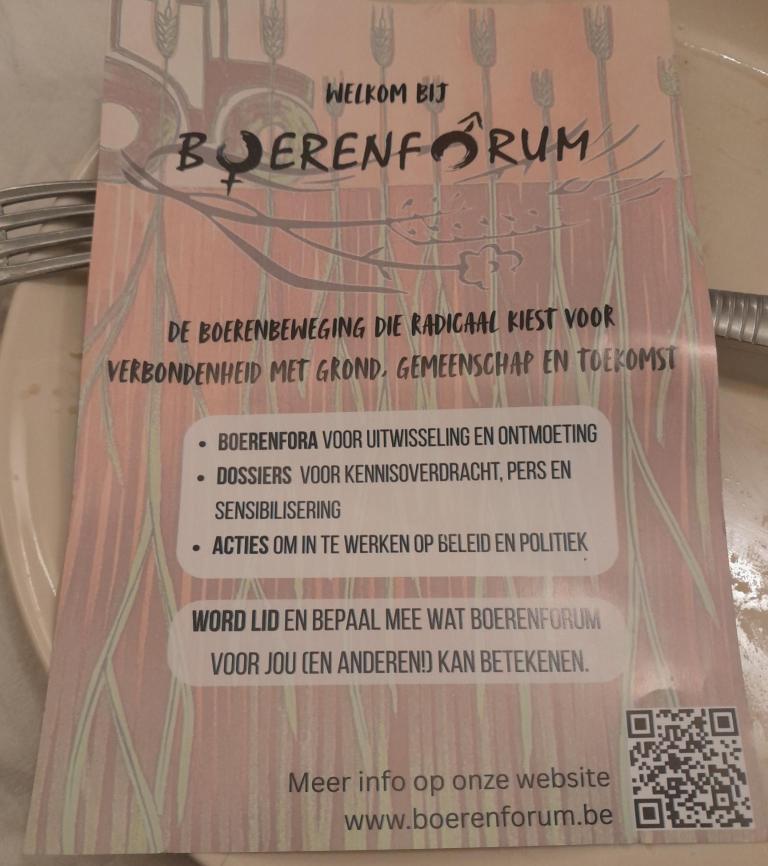 WELKOM BIJ
BOERENFORUM
DE BOERENBEWEGING DIE RADICAAL KIEST VOOR
VERBONDENHEID MET GROND, GEMEENSCHAP EN TOEKOMST
• BOERENFORA VOOR UITWISSELING EN ONTMOETING
• DOSSIERS VOOR KENNISOVERDRACHT, PERS EN
SENSIBILISERING
• ACTIES OM IN TE WERKEN OP BELEID EN POLITIEK
WORD LID EN BEPAAL MEE WAT BOERENFORUM
VOOR JOU (EN ANDEREN!) KAN BETEKENEN.
Meer info op onze website
www.boerenforum.be